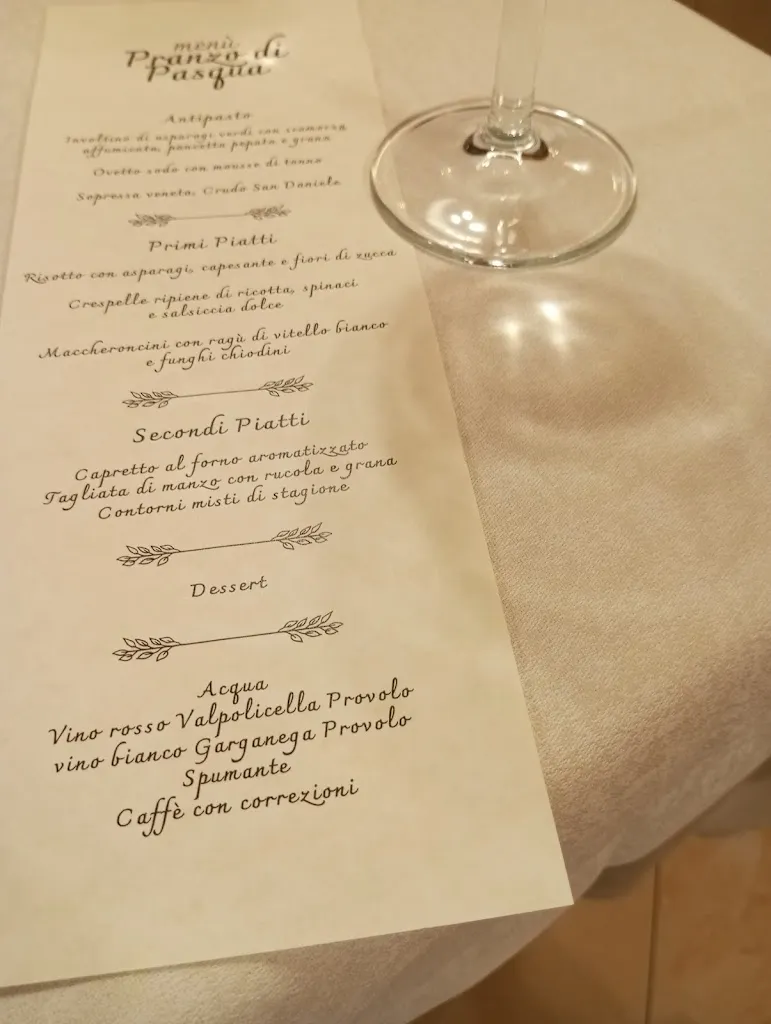 menù
Pranzo di
Pasqua
Antipasto
Involtino di asparagi verdi con scamorza
affumicata, pancetta pepata e grana
Ovetto sodo con mousse di tonno
Sopressa veneta, Crudo San Daniele
Primi Piatti
Risotto con asparagi, capesante e fiori di zucca
Crespelle ripiene di ricotta, spinaci
e salsiccia dolce
Maccheroncini con ragù di vitello bianco
e funghi chiodini
Secondi Piatti
Capretto al forno aromatizzato
Tagliata di manzo con rucola e grana
Contorni misti di stagione
Dessert
Acqua
Vino rosso Valpolicella Provolo
vino bianco Garganega Provolo
Spumante
Caffè con correzioni